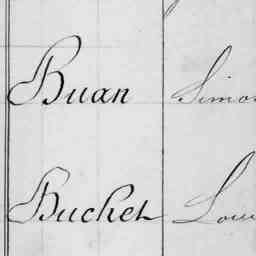 Buan Simo
Buchet Lou